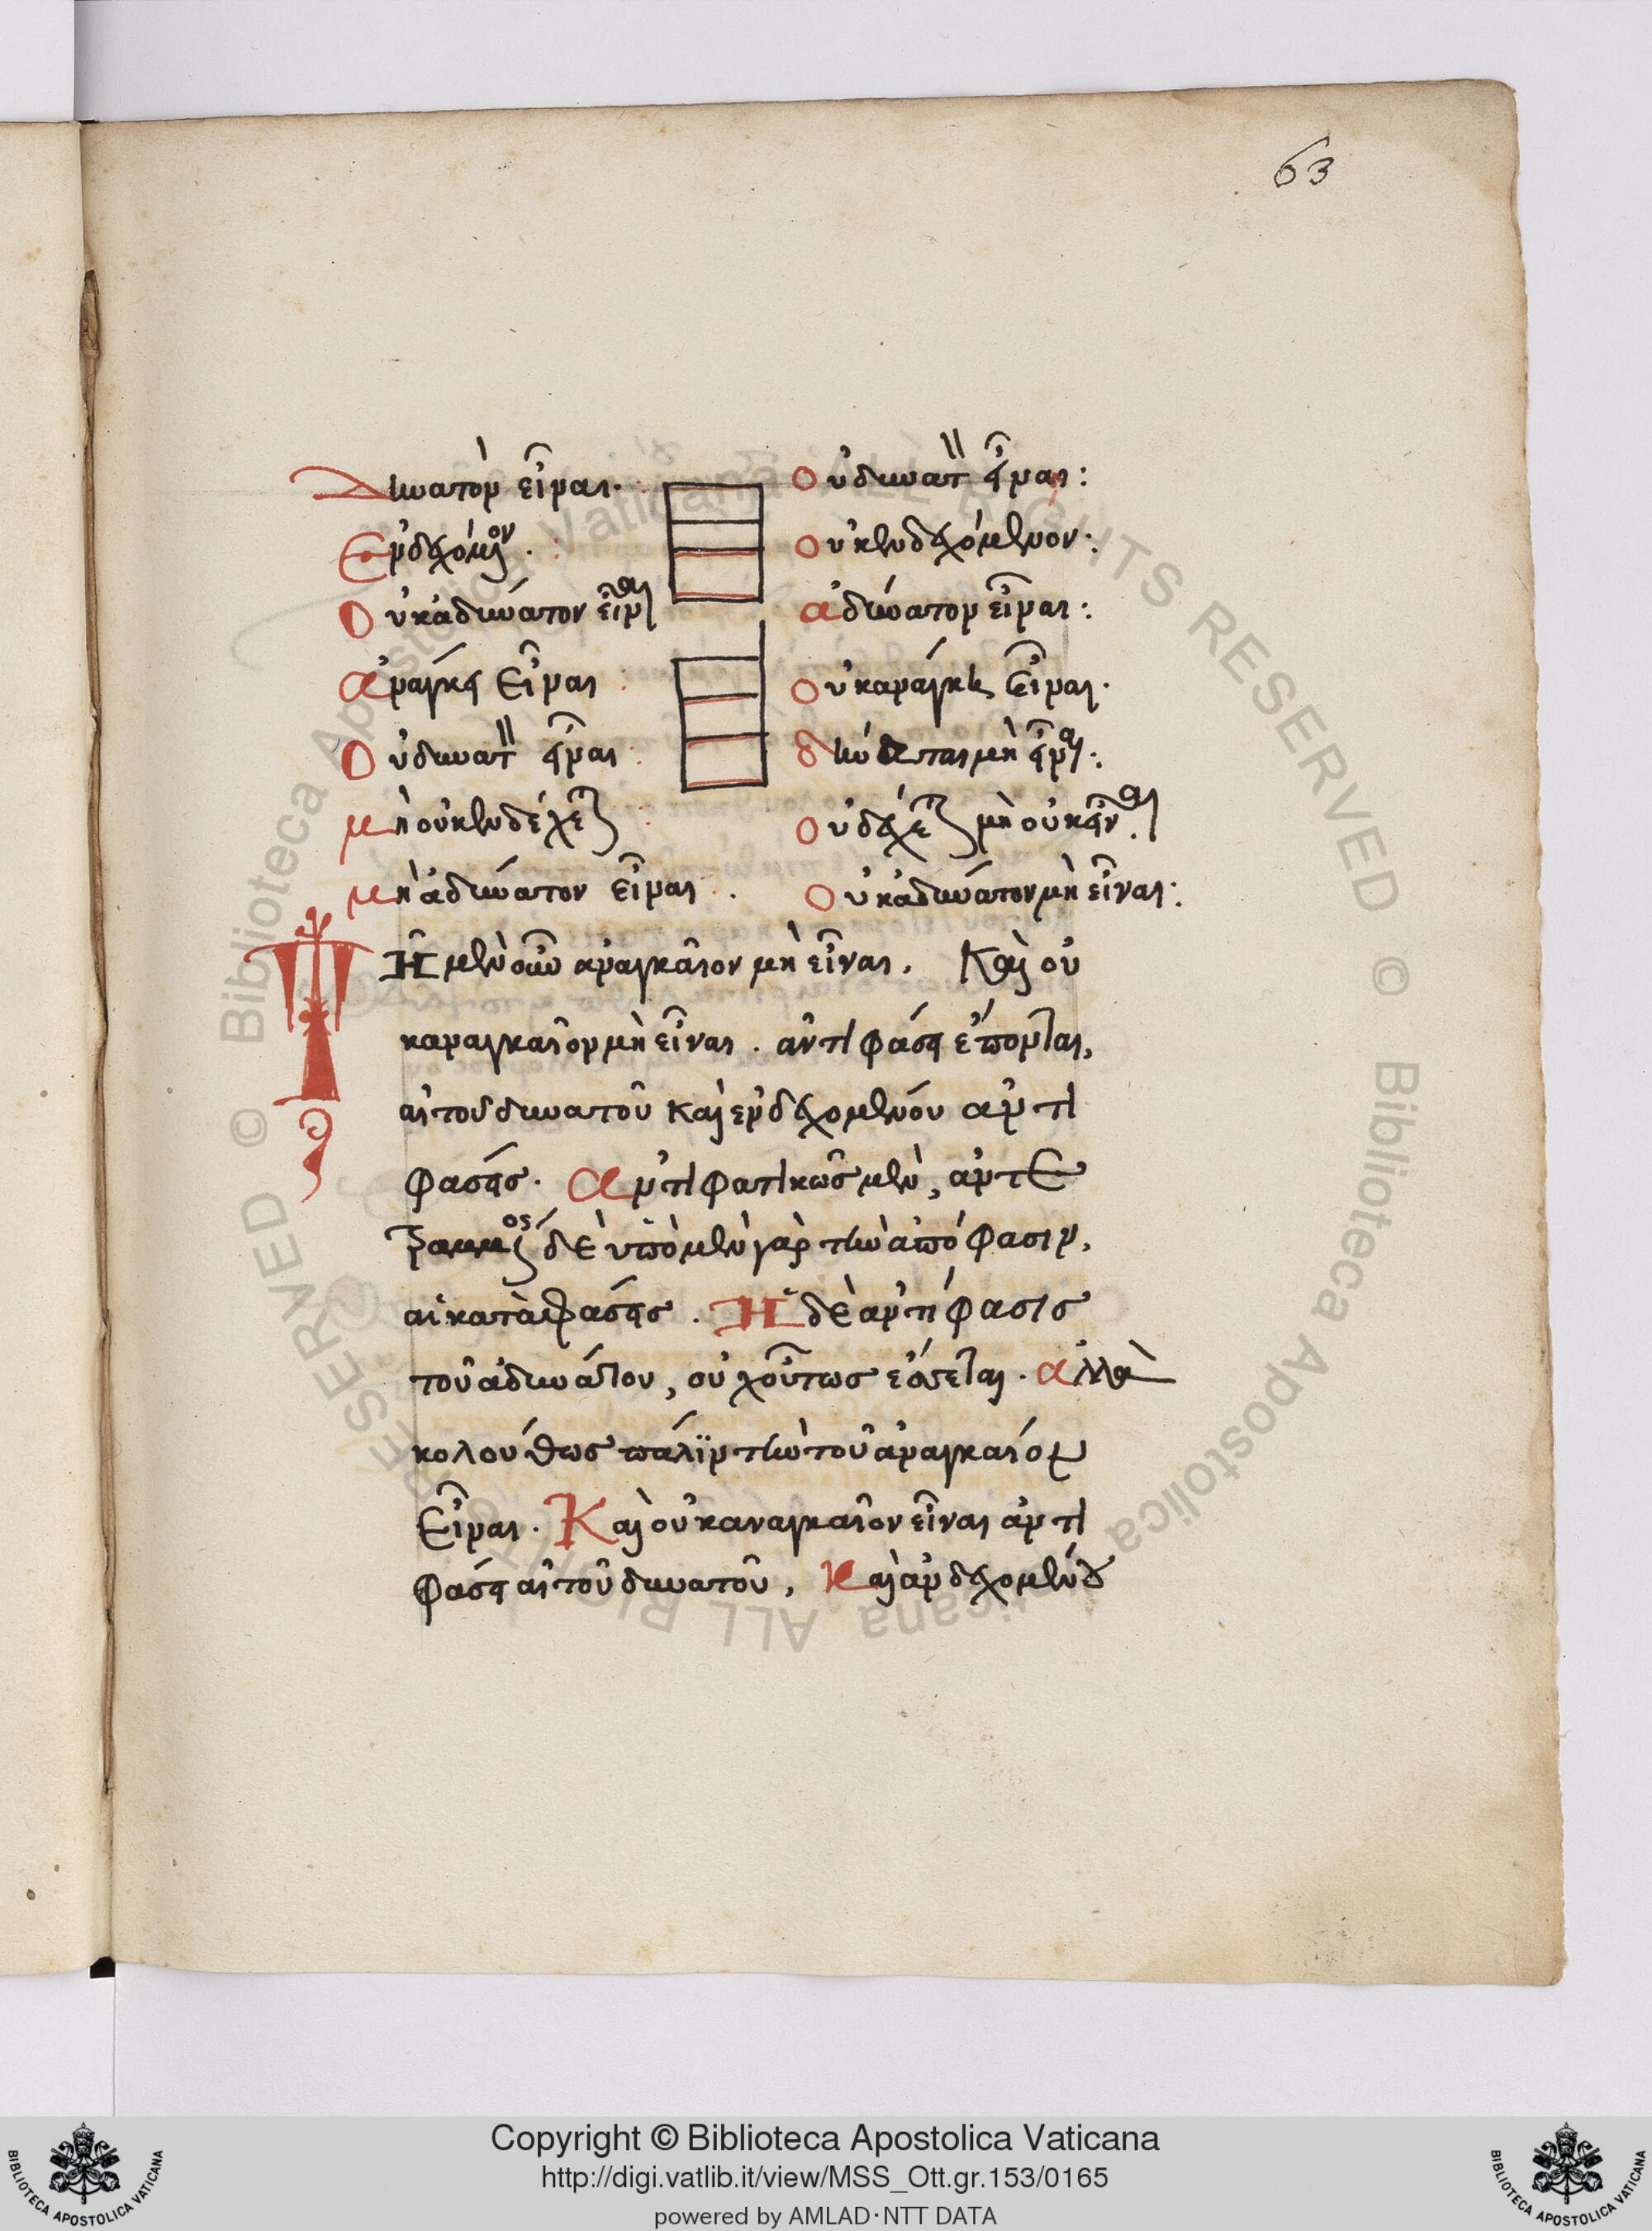 63
Δυνατὸν εἶναι. Οὐ δυνατὸν εἶναι:
Ἐνδεχόμενον. Οὐκ ἐνδεχόμενον:
Οὐκ ἀδύνατον εἶναι ἀδύνατον εἶναι:
ἀναγκ εἶναι Οὐκ ἀναγκ εἶναι.
Οὐ δυνατὸν εἶναι: δύναται μὴ εἶναι:
μὴ οὐκ ἐνδέχεται Οὐδέχεται μὴ οὐκ εἶναι.
μὴ ἀδύνατον εἶναι. Οὐκ ἀδύνατον μὴ εἶναι:
Τῆ μὲν οὖν ἀναγκαῖον μὴ εἶναι. Καὶ οὐ
κ ἀναγκαῖον μὴ εἶναι. ἀντιφάσει ἕπονται,
αἱ τοῦ δυνατοῦ καὶ ἐνδεχομένου ἀντι
φάσεις. Ἀντιφατικῶς μὲν, ἀντε
δὲ ὑπὸ μὲν γὰρ τὴν ἀπόφασιν,
αἱ κατὰφάσεις. Ἡ δὲ ἀντίφασις
τοῦ ἀδυνάτου, οὐχ οὕτως ἕψεται. ἀλλὰ
κολούθως πάλιν τὴν τοῦ ἀναγκαίου
εἶναι. Καὶ οὐκ ἀναγκαῖον εἶναι ἀντι
φάσει αἱ τοῦ δυνατοῦ, Καὶ ἀνδεχομένου
Copyright © Biblioteca Apostolica Vaticana
http://digi.vatlib.it/view/MSS_Ott.gr.153/0165
powered by AMLAD·NTT DATA